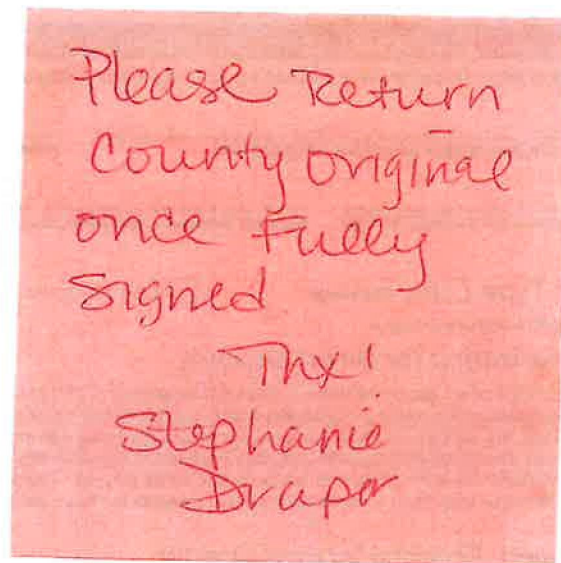 Please Return
County original
once Fully
Signed
Thx!
Stephanie
Draper